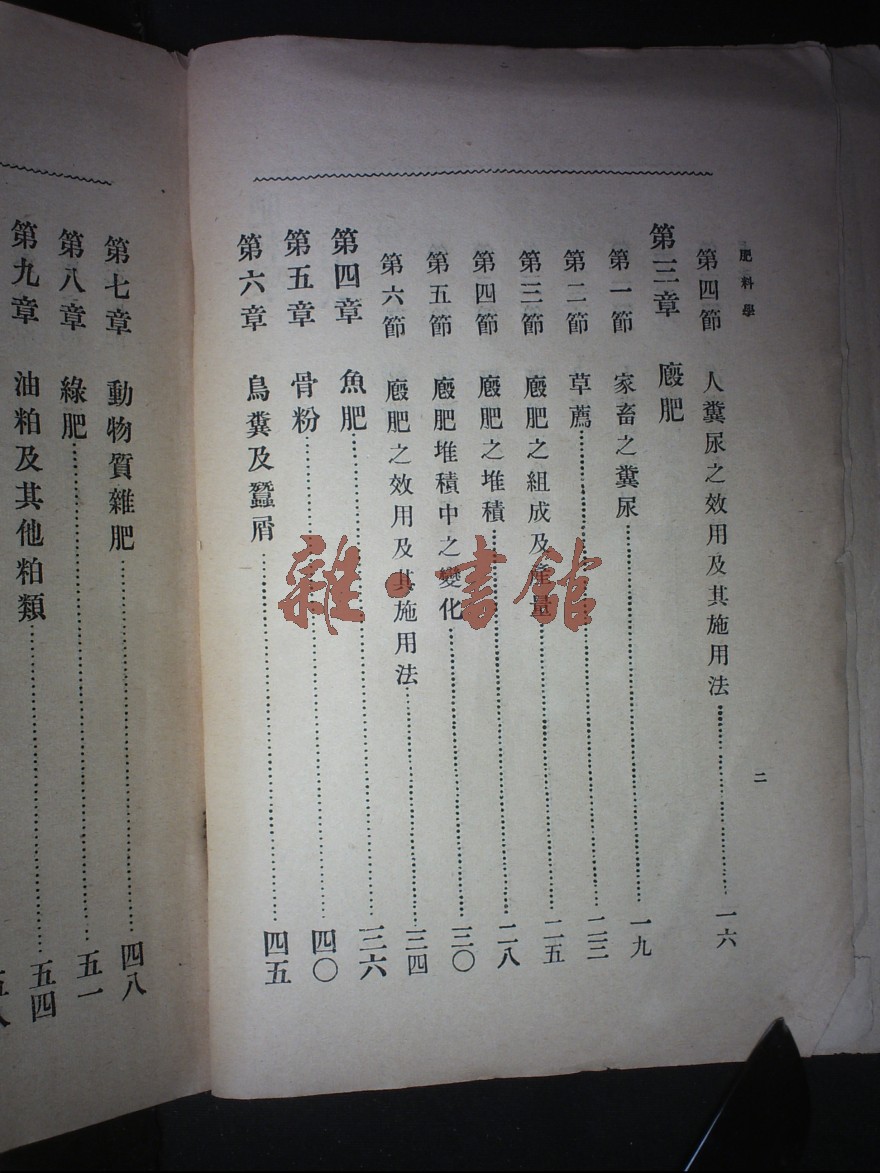 肥料學
二
第四節 人糞尿之效用及其施用法……一六
第三章 廏肥
第一節 家畜之糞尿……一九
第二節 草薦……二三
第三節 廏肥之組成及產量……二五
第四節 廏肥之堆積……二八
第五節 廏肥堆積中之變化……三〇
第六節 廏肥之效用及其施用法……三四
第四章 魚肥……三六
第五章 骨粉……四〇
第六章 鳥糞及蠶屑……四五
第七章 動物質雜肥……四八
第八章 綠肥……五一
第九章 油粕及其他粕類……五四
雜·書館